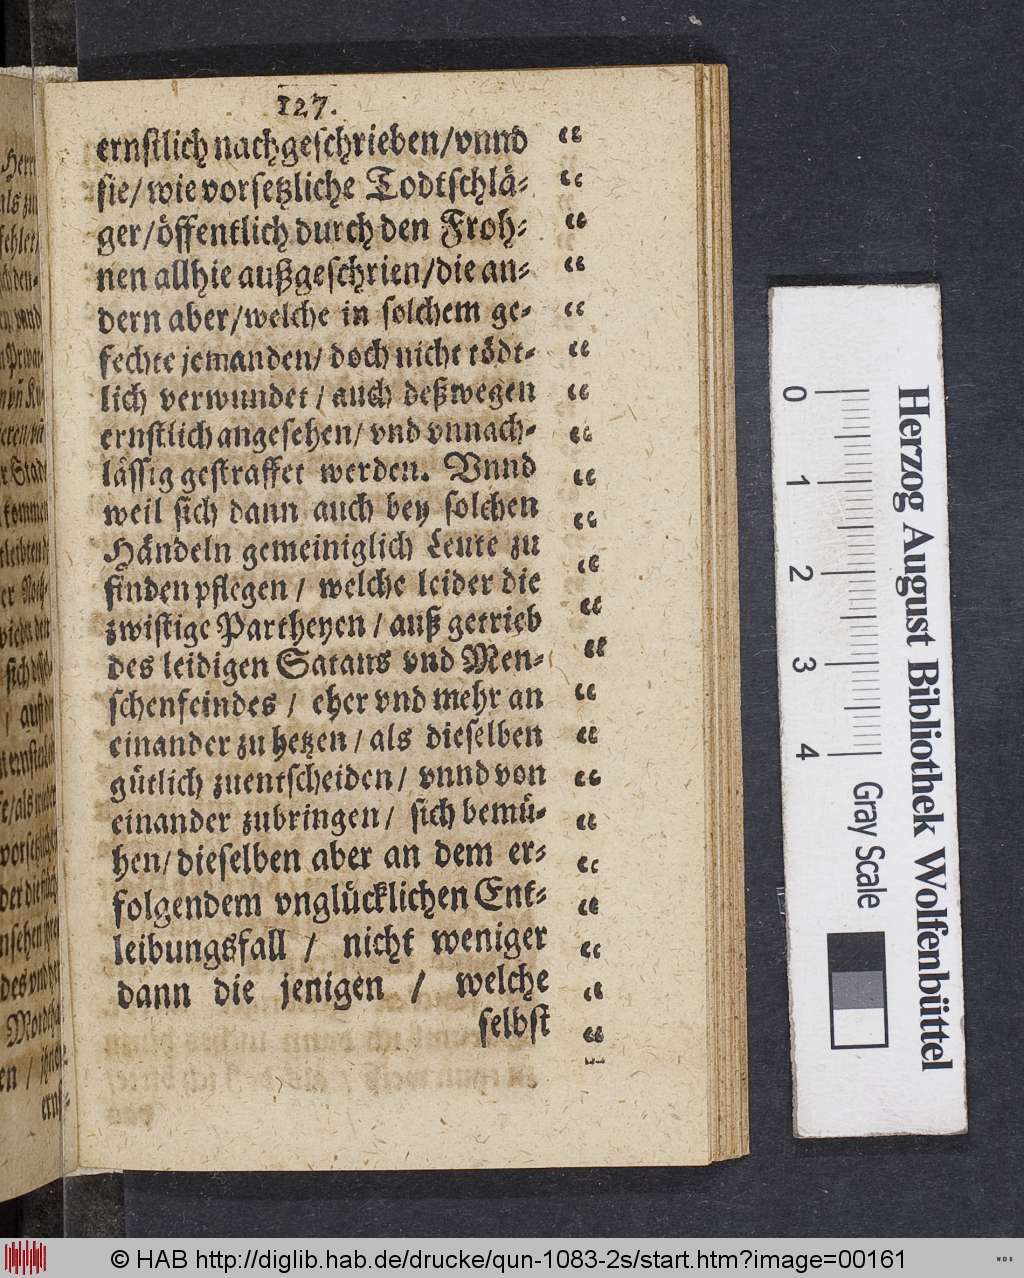 127.
ernstlich nachgeschrieben/vnnd “
sie/ wie vorsetzliche Todtschlä- “
ger/öffentlich durch den Froh- “
nen allhie außgeschrien/die an- “
dern aber/welche in solchem ge- “
fechte jemanden/ doch nicht tödt- “
lich verwundet / auch deßwegen “
ernstlich angesehen/ vnd vnnach- “
lässig gestraffet werden. Vnnd “
weil sich dann auch bey solchen “
Händeln gemeiniglich Leute zu “
finden pflegen / welche leider die “
zwistige Partheyen / auß getrieb “
des leidigen Satans vnd Men- “
schenfeindes / eher vnd mehr an “
einander zu hetzen / als dieselben “
gütlich zuentscheiden / vnnd von “
einander zubringen / sich bemü- “
hen/ dieselben aber an dem er- “
folgendem vnglücklichen Ent- “
leibungsfall / nicht weniger “
dann die jenigen / welche “
selbst “
Herzog August Bibliothek Wolfenbüttel
0 1 2 3 4
Gray Scale
© HAB http://diglib.hab.de/drucke/qun-1083-2s/start.htm?image=00161